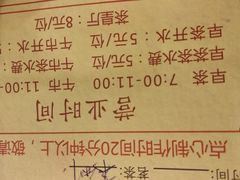 时间: 茗茶:
点心制作时间20分钟以上,敬请
营业时间
早茶 7:00-11:00 午市 11:00
早茶茶水费:5元/位 午市茶水费
早茶开水:5元/位 午市开水
茶皇厅:8元/位